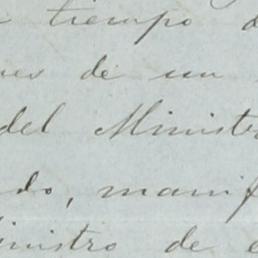 tiempo
de un
del Ministr
do, manif
inistro de